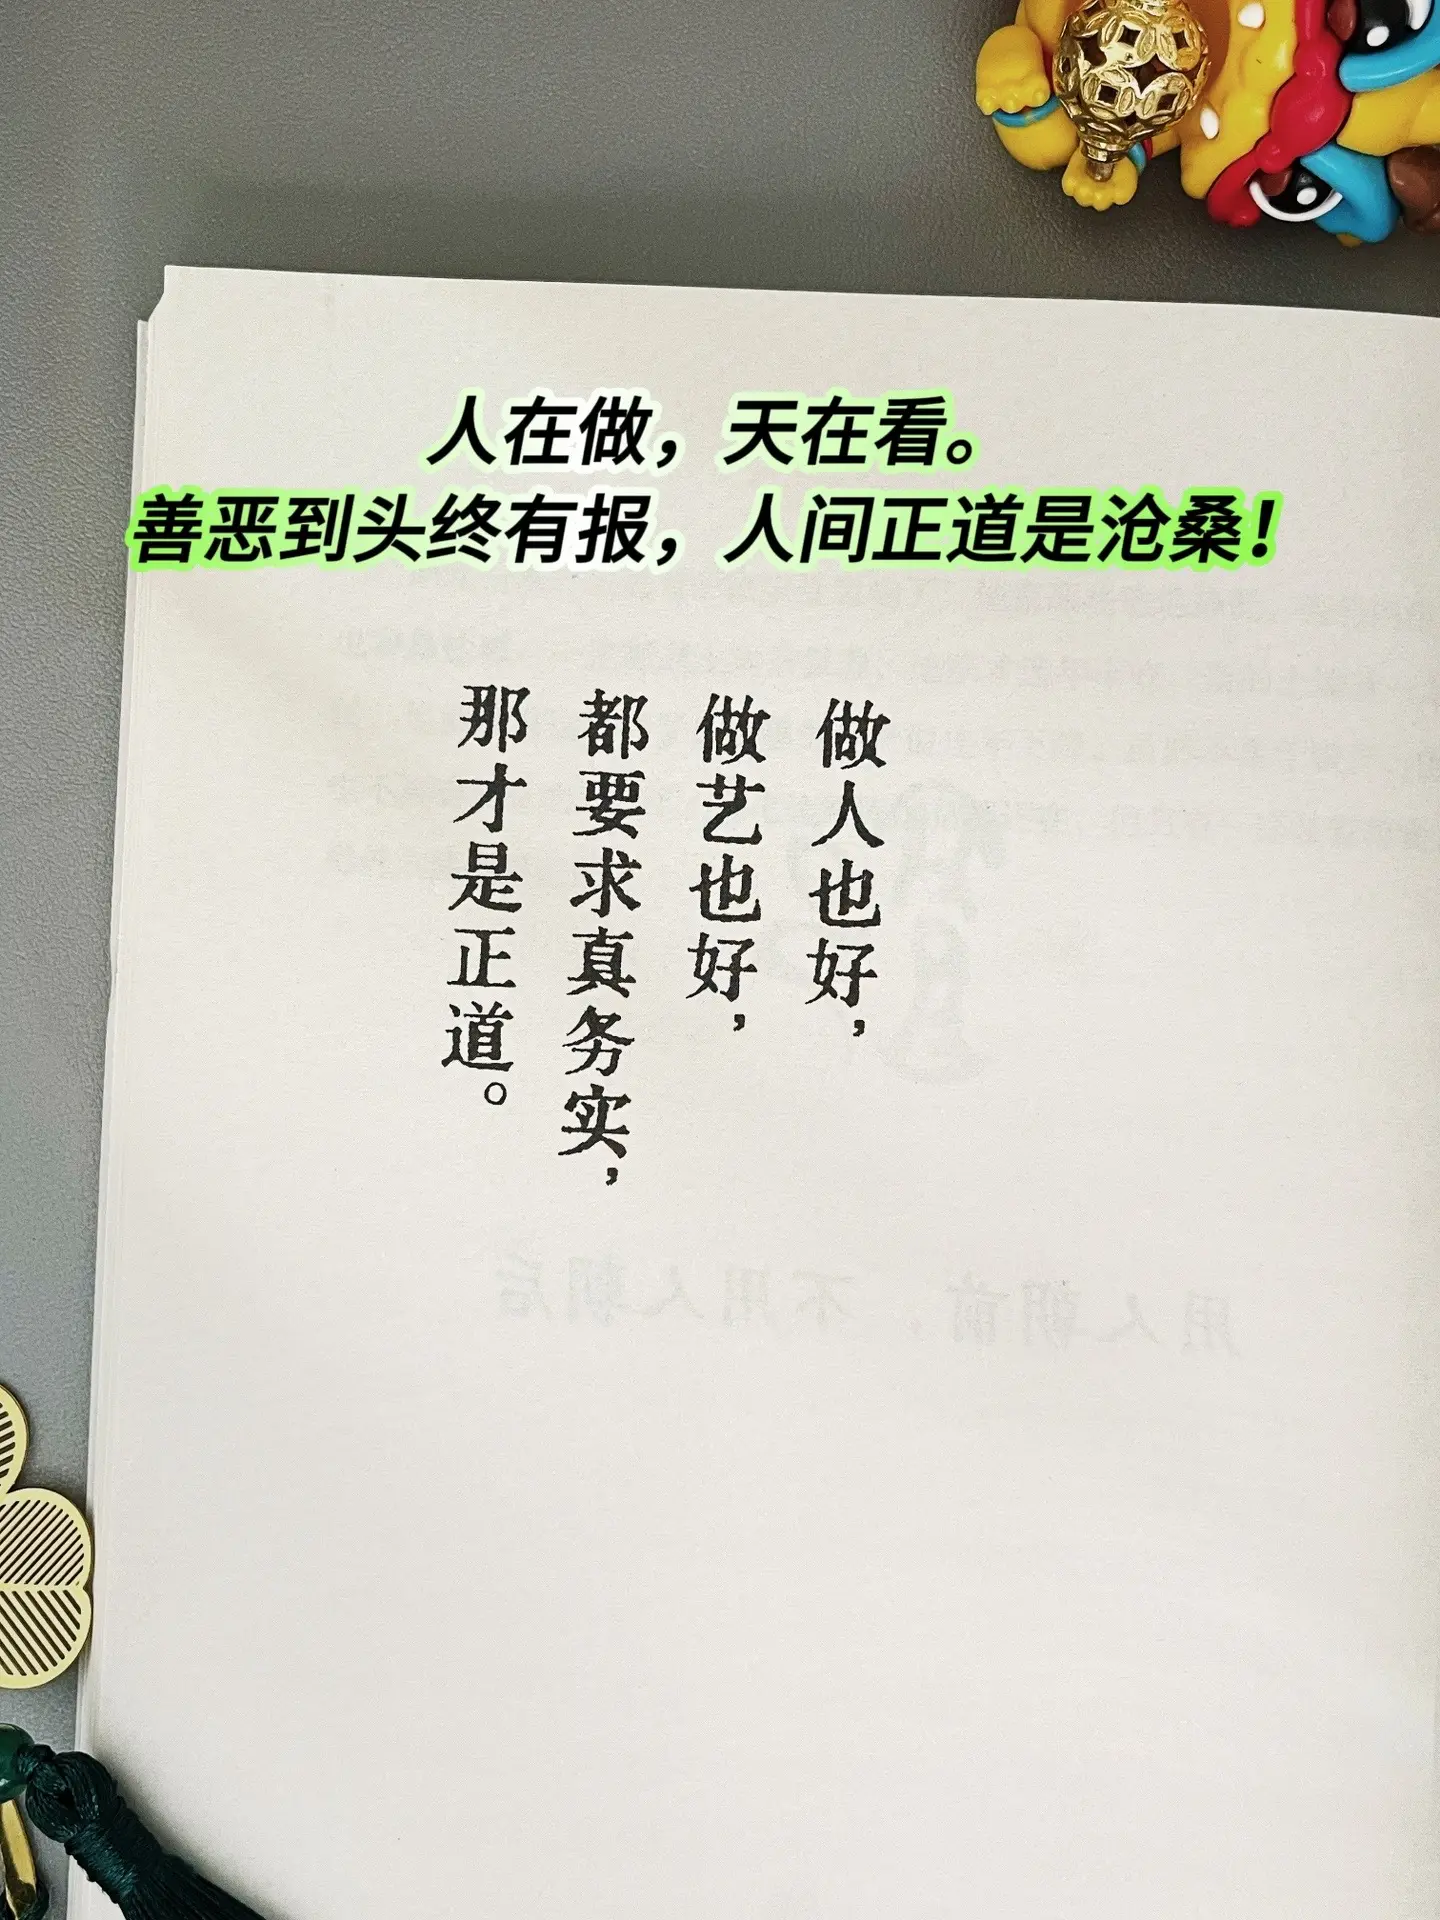 人在做，天在看。
善恶到头终有报，人间正道是沧桑！
做人也好，
做艺也好，
都要求真务实，
那才是正道。
用人朝前，不用人朝后